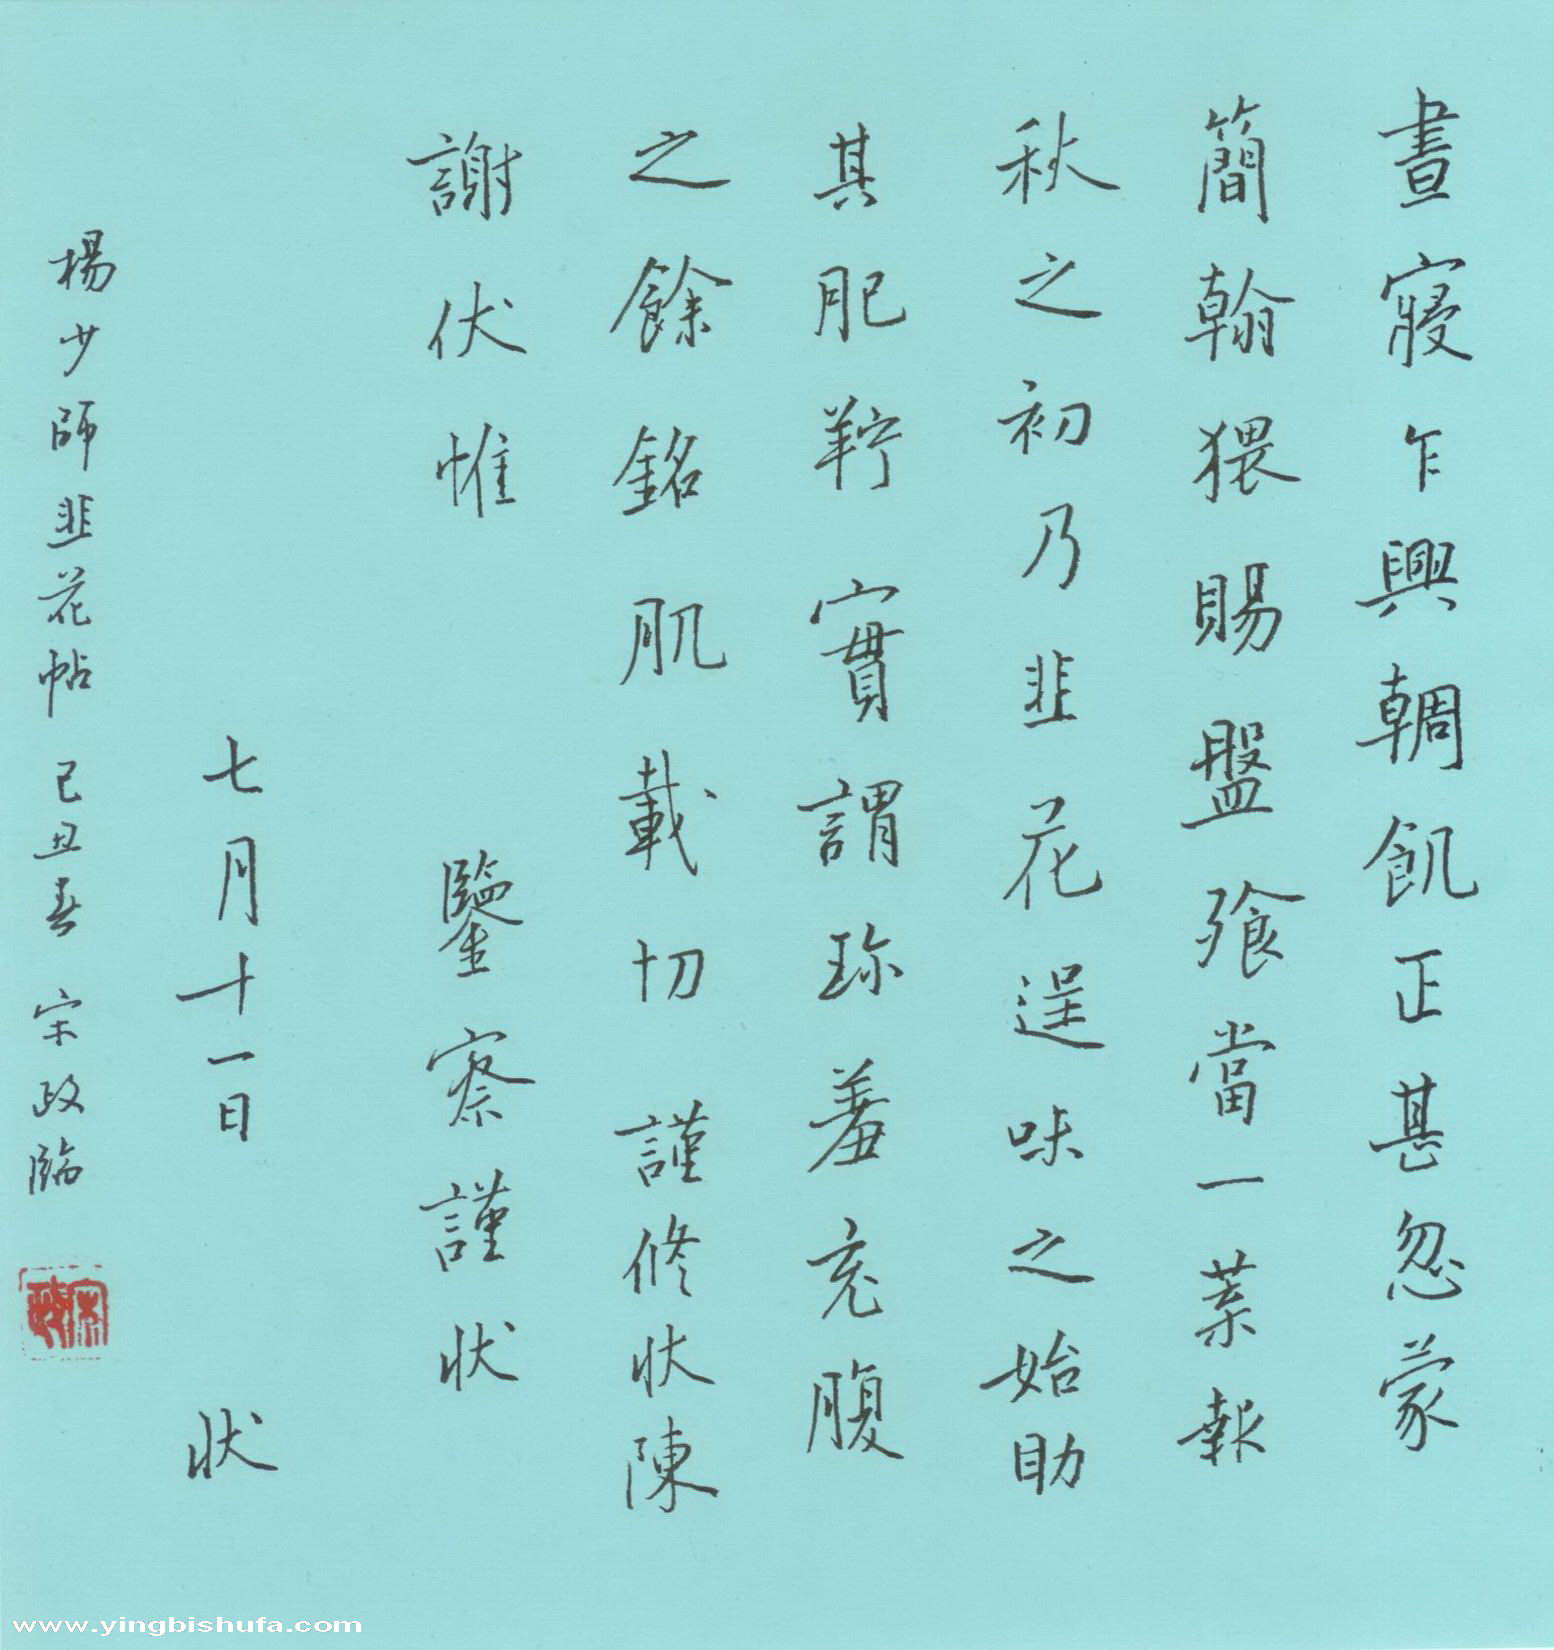 晝寢乍興輖飢正甚忽蒙
簡翰猥賜盤飱當一葉報
秋之初乃韭花逞味之始助
其肥羜實謂珎羞充腹
之餘銘肌載切謹修狀陳
謝伏惟鑒察謹狀
七月十一日狀
楊少師韭花帖己丑春宋政臨
宋政
www.yingbishufa.com